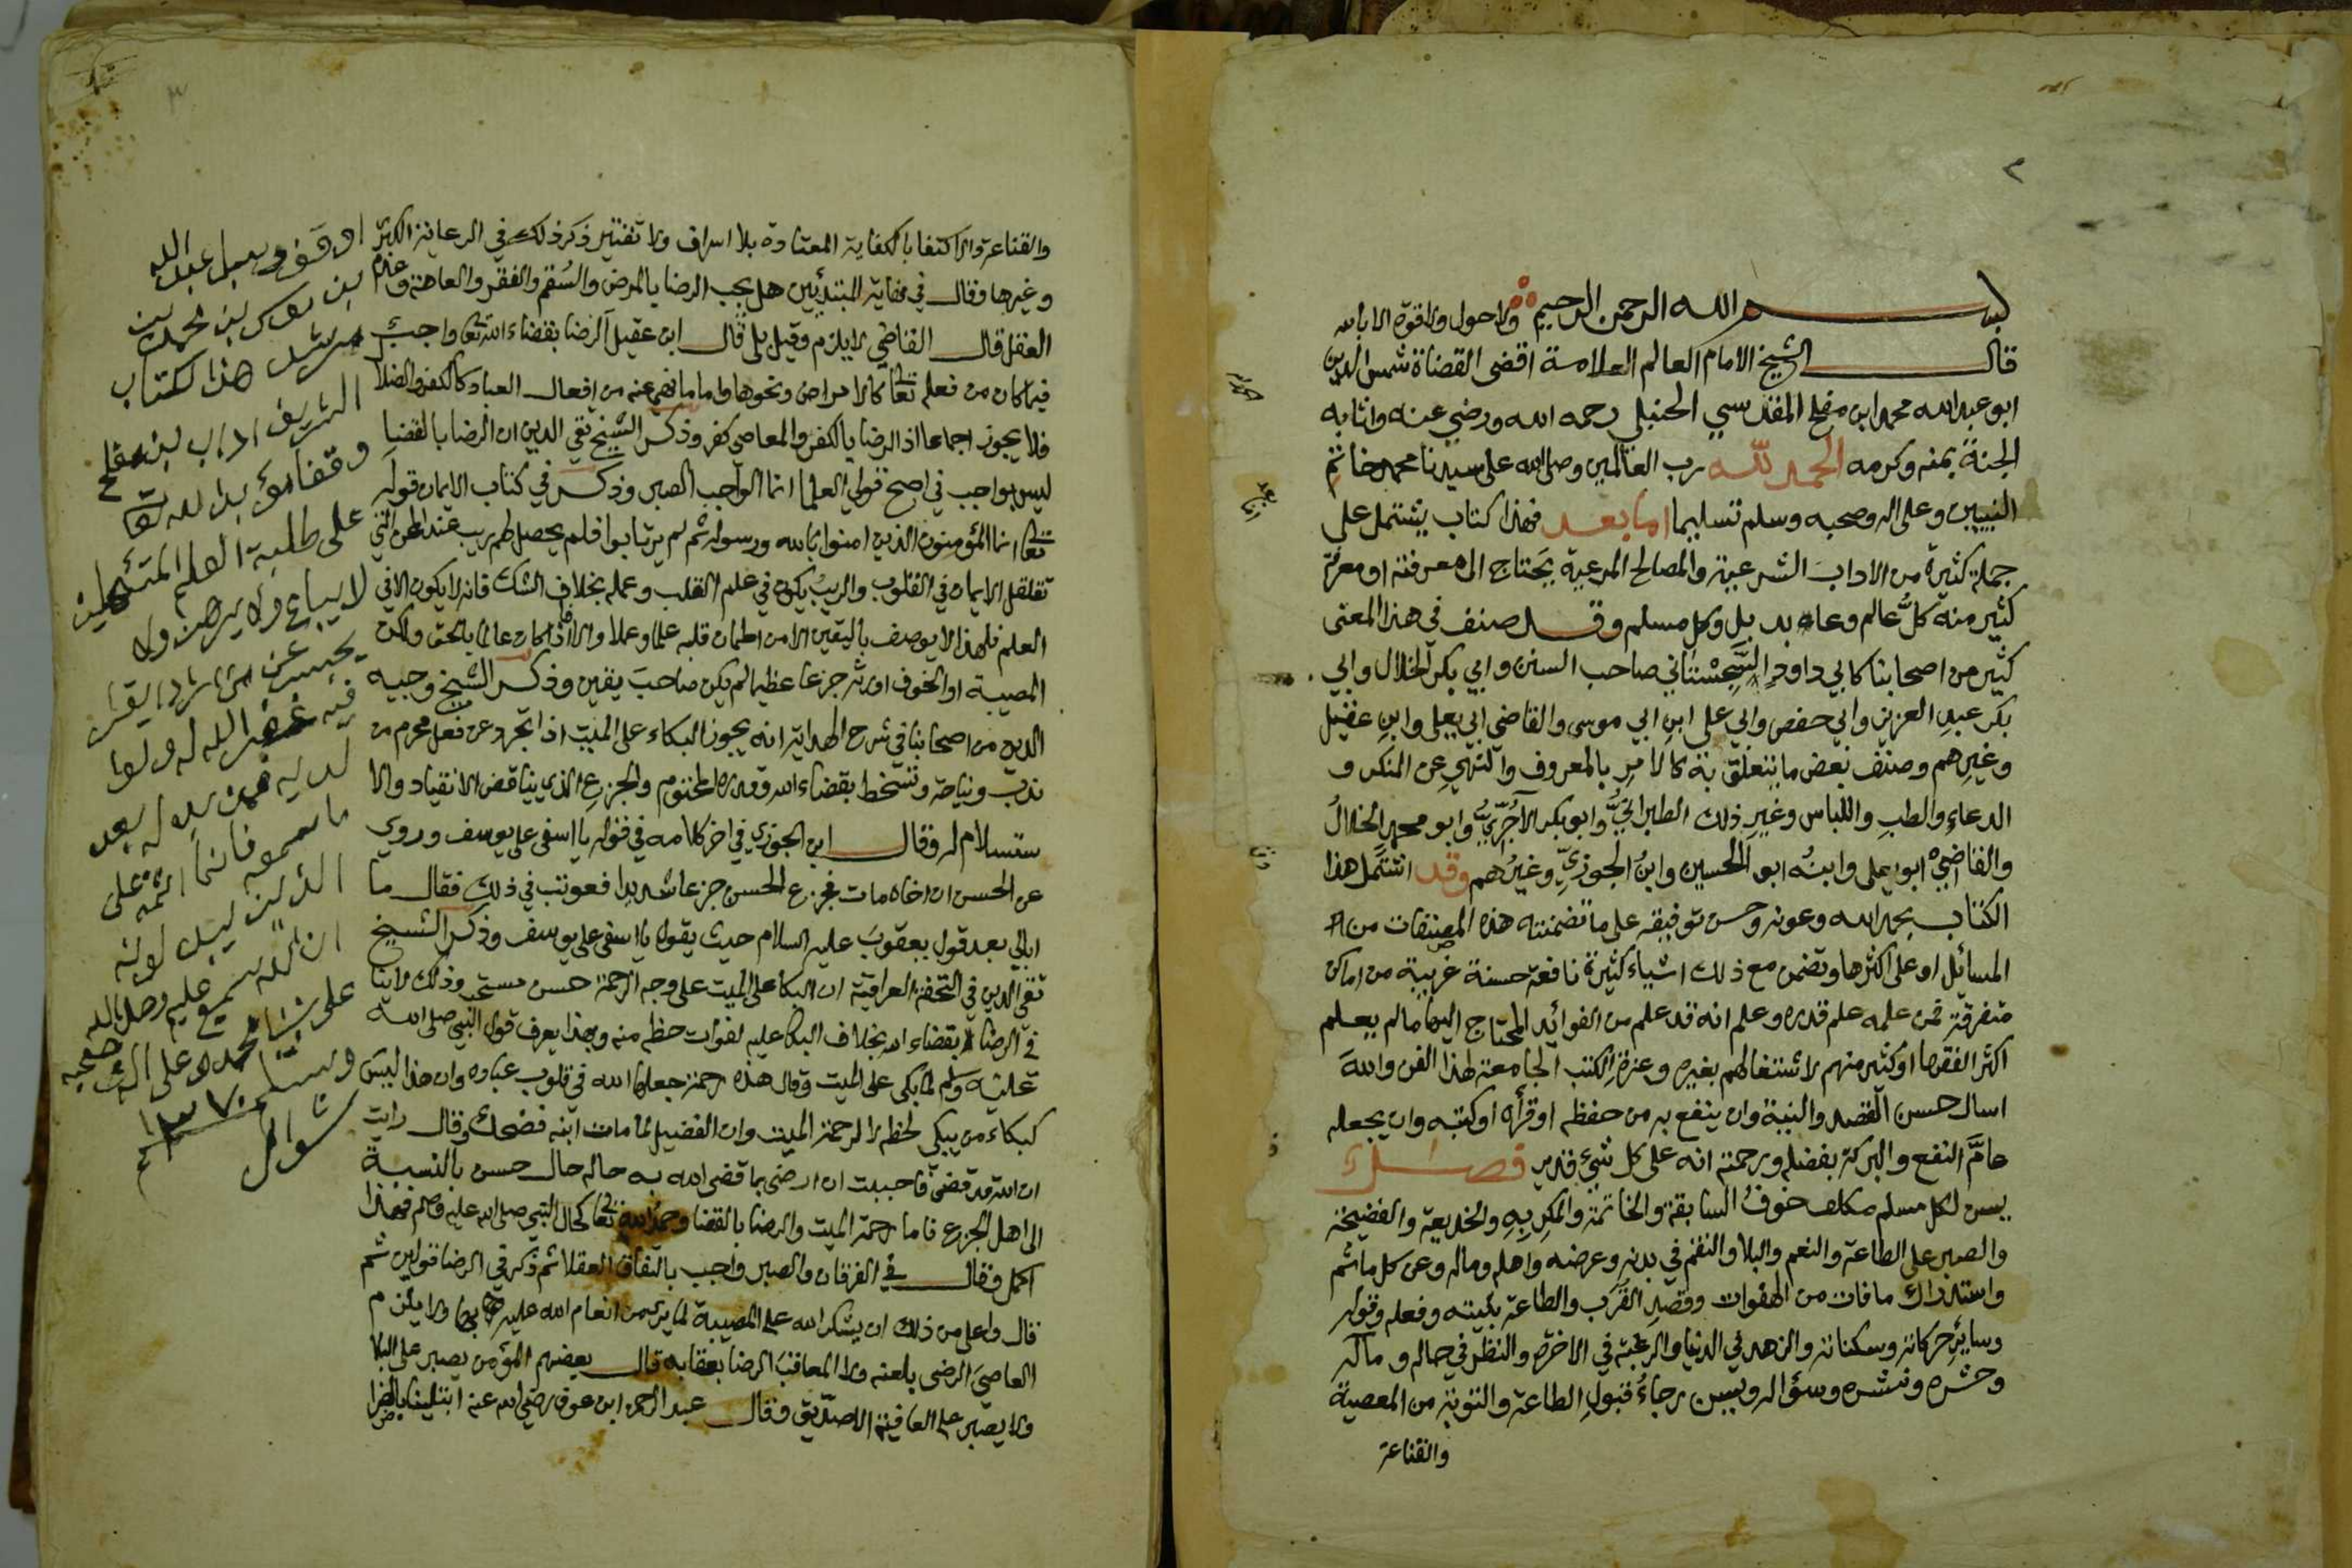 ٢
بسم الله الرحمن الرحيم ولا حول ولا قوة الا بالله
قال الشيخ الامام العالم العلامة اقضى القضاة شمس الدين
ابو عبد الله محمد ابن مفلح المقدسي الحنبلي رحمه الله ورضي عنه واثابه
الجنة بمنه وكرمه الحمد لله رب العالمين وصلى الله على سيدنا محمد خاتم
النبيين وعلى اله وصحبه وسلم تسليما اما بعد فهذا كتاب يشتمل على
جملة كثيرة من الاداب الشرعية والمصالح المرعية يحتاج الى معرفته او معرفة
كثير منه كل عالم وعابد بل وكل مسلم وقد صنف في هذا المعنى
كثير من اصحابنا كابي داود السجستاني صاحب السنن وابي بكر الخلال وابي
بكر عبد العزيز وابي حفص وابي علي ابن ابي موسى والقاضي ابي يعلى وابن عقيل
وغيرهم وصنف بعض ما يتعلق به كالامر بالمعروف والنهي عن المنكر و
الدعاء والطب واللباس وغير ذلك الطبراني وابو بكر الآجري وابو محمد الخلال
والقاضي ابو يعلى وابنه ابو الحسين وابن الجوزي وغيرهم وقد اشتمل هذا
الكتاب بحمد الله وعونه وحسن توفيقه على ما تضمنته هذه المصنفات من
المسائل او على اكثرها وتضمن مع ذلك اشياء كثيرة نافعة حسنة غريبة من اماكن
متفرقة فمن علمه علم قدره وعلم انه قد علم من الفوائد المحتاج اليها ما لم يعلم
اكثر الفقها او كثير منهم لاشتغالهم بغيره وعزة الكتب الجامعة لهذا الفن والله
اسال حسن القصد والنية وان ينفع به من حفظه او قرأه او كتبه وان يجعله
عام النفع والبركة بفضله ورحمته انه على كل شيء قدير فصل
يسن لكل مسلم مكلف خوف السابقة والخاتمة والمكر به والخديعة والفضيحة
والصبر على الطاعة والنعم والبلا والنقم في بدنه وعرضه واهله وماله وعن كل ماثم
واستدراك ما فات من الهفوات وقصد القرب والطاعة بنيته وفعله وقوله
وساير حركاته وسكناته والزهد في الدنيا والرغبة في الاخرة والنظر في حاله وماله
وحشره ونشره وسؤاله ويسن رجاء قبول الطاعة والتوبة من المعصية
والقناعة
٣
والقناعة والاكتفا بالكفاية المعتادة بلا اسراف ولا تقتير ذكر ذلك في الرعاية الكبرى
وغيرها وقال في نهاية المبتدئين هل يجب الرضا بالمرض والسقم والفقر والعاهة وعدم
العقل قال القاضي لا يلزم وقيل بلى قال ابن عقيل الرضا بقضاء الله تعا واجب
فيما كان من فعله تعا كالامراض ونحوها واما ما نهي عنه من افعال العباد كالكفر والضلال
فلا يجوز اجماعا اذ الرضا بالكفر والمعاصي كفر وذكر الشيخ تقي الدين ان الرضا بالقضا
ليس بواجب في اصح قولي العلما انما الواجب الصبر وذكر في كتاب الايمان قوله
تعا انما المؤمنون الذين امنوا بالله ورسوله ثم لم يرتابوا فلم يحصل لهم ريب عند المحن التي
تقلقل الايمان في القلوب والريب يكون في علم القلب وعمله بخلاف الشك فانه لا يكون الا في
العلم فلهذا لا يوصف باليقين الا من اطمان قلبه علما وعملا والا فاذا كان عالما بالحق ولكن
المصيبة او الخوف اورثه جزعا عظيما لم يكن صاحب يقين وذكر الشيخ وجيه
الدين من اصحابنا في شرح الهداية انه يجوز البكاء على الميت اذا تجرد عن فعل محرم من
ندب ونياحة وتسخط بقضاء الله وقدره المحتوم والجزع الذي يناقض الانقياد والا
ستسلام له وقال ابن الجوزي في اخر كلامه في قوله يا اسفى على يوسف وروي
عن الحسن ان اخاه مات فجزع الحسن جزعا شديدا فعوتب في ذلك فقال ما
ابالي بعد قول يعقوب عليه السلام حيث يقول يا اسفى على يوسف وذكر الشيخ
تقي الدين في التحفة العراقية ان البكا على الميت على وجه الرحمة حسن مستحب وذلك لا ينا
في الرضا بقضاء الله بخلاف البكا عليه لفوات حظه منه وبهذا يعرف قول النبي صلى الله
عليه وسلم لما بكى على الميت وقال هذه رحمة جعلها الله في قلوب عباده وان هذا ليس
كبكاء من يبكي لحظه لا لرحمة الميت وان الفضيل لما مات ابنه فضحك وقال رايت
ان الله قد قضى فاحببت ان ارضى بما قضى الله به حاله حال حسن بالنسبة
الى اهل الجزع فاما رحمة الميت والرضا بالقضا وحمد الله تعا كحال النبي صلى الله عليه وسلم فهذا
اكمل وقال في الفرقان والصبر واجب باتفاق العقلا ثم ذكر في الرضا قولين ثم
قال واعلى من ذلك ان يشكر الله على المصيبة لما يرى من انعام الله عليه بها ولا يلزم
العاصي الرضى بلعنه ولا المعاقب الرضا بعقابه قال بعضهم المؤمن يصبر على البلا
ولا يصبر على العافية الا صديق وقال عبد الرحمن ابن عوف رضي الله عنه ابتلينا بالضرا
اوقف وسبل عبد الله
بن محمد بن
هذا الكتاب
الشريف اداب بن مفلح
وقفا لله تعا
على طلبة العلم
لا يباع ولا يرهن ولا
غفر الله له ولوا
لديه
ما سمعه فانما اثمه على
الذين يبدلونه
ان الله سميع عليم وصل الله
على نبينا محمد وعلى اله وصحبه
وسلم
شوال